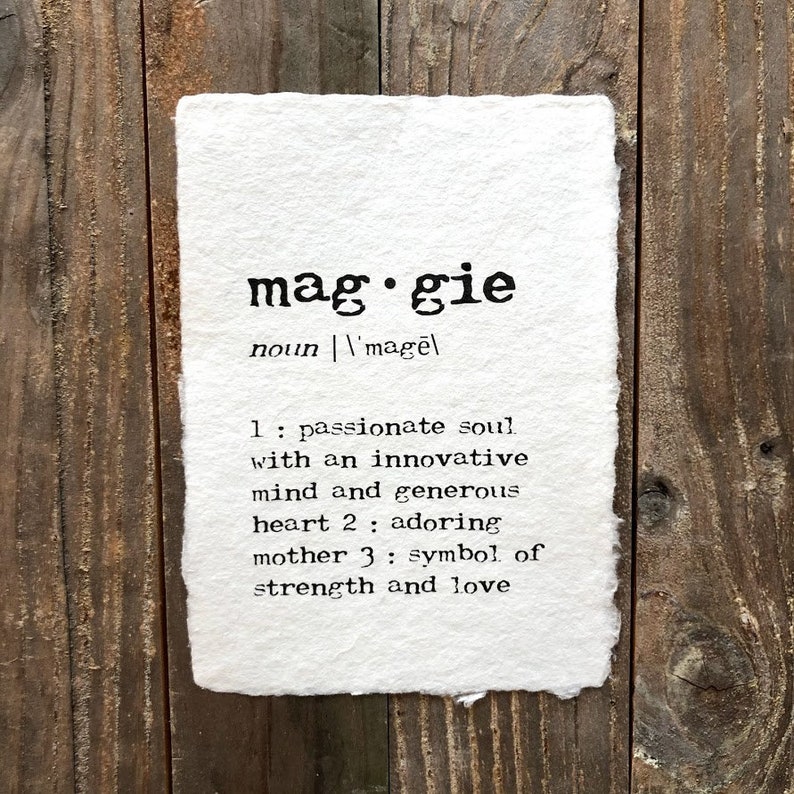 mag·gie
noun | \ˈmagē\
1 : passionate soul
with an innovative
mind and generous
heart 2 : adoring
mother 3 : symbol of
strength and love